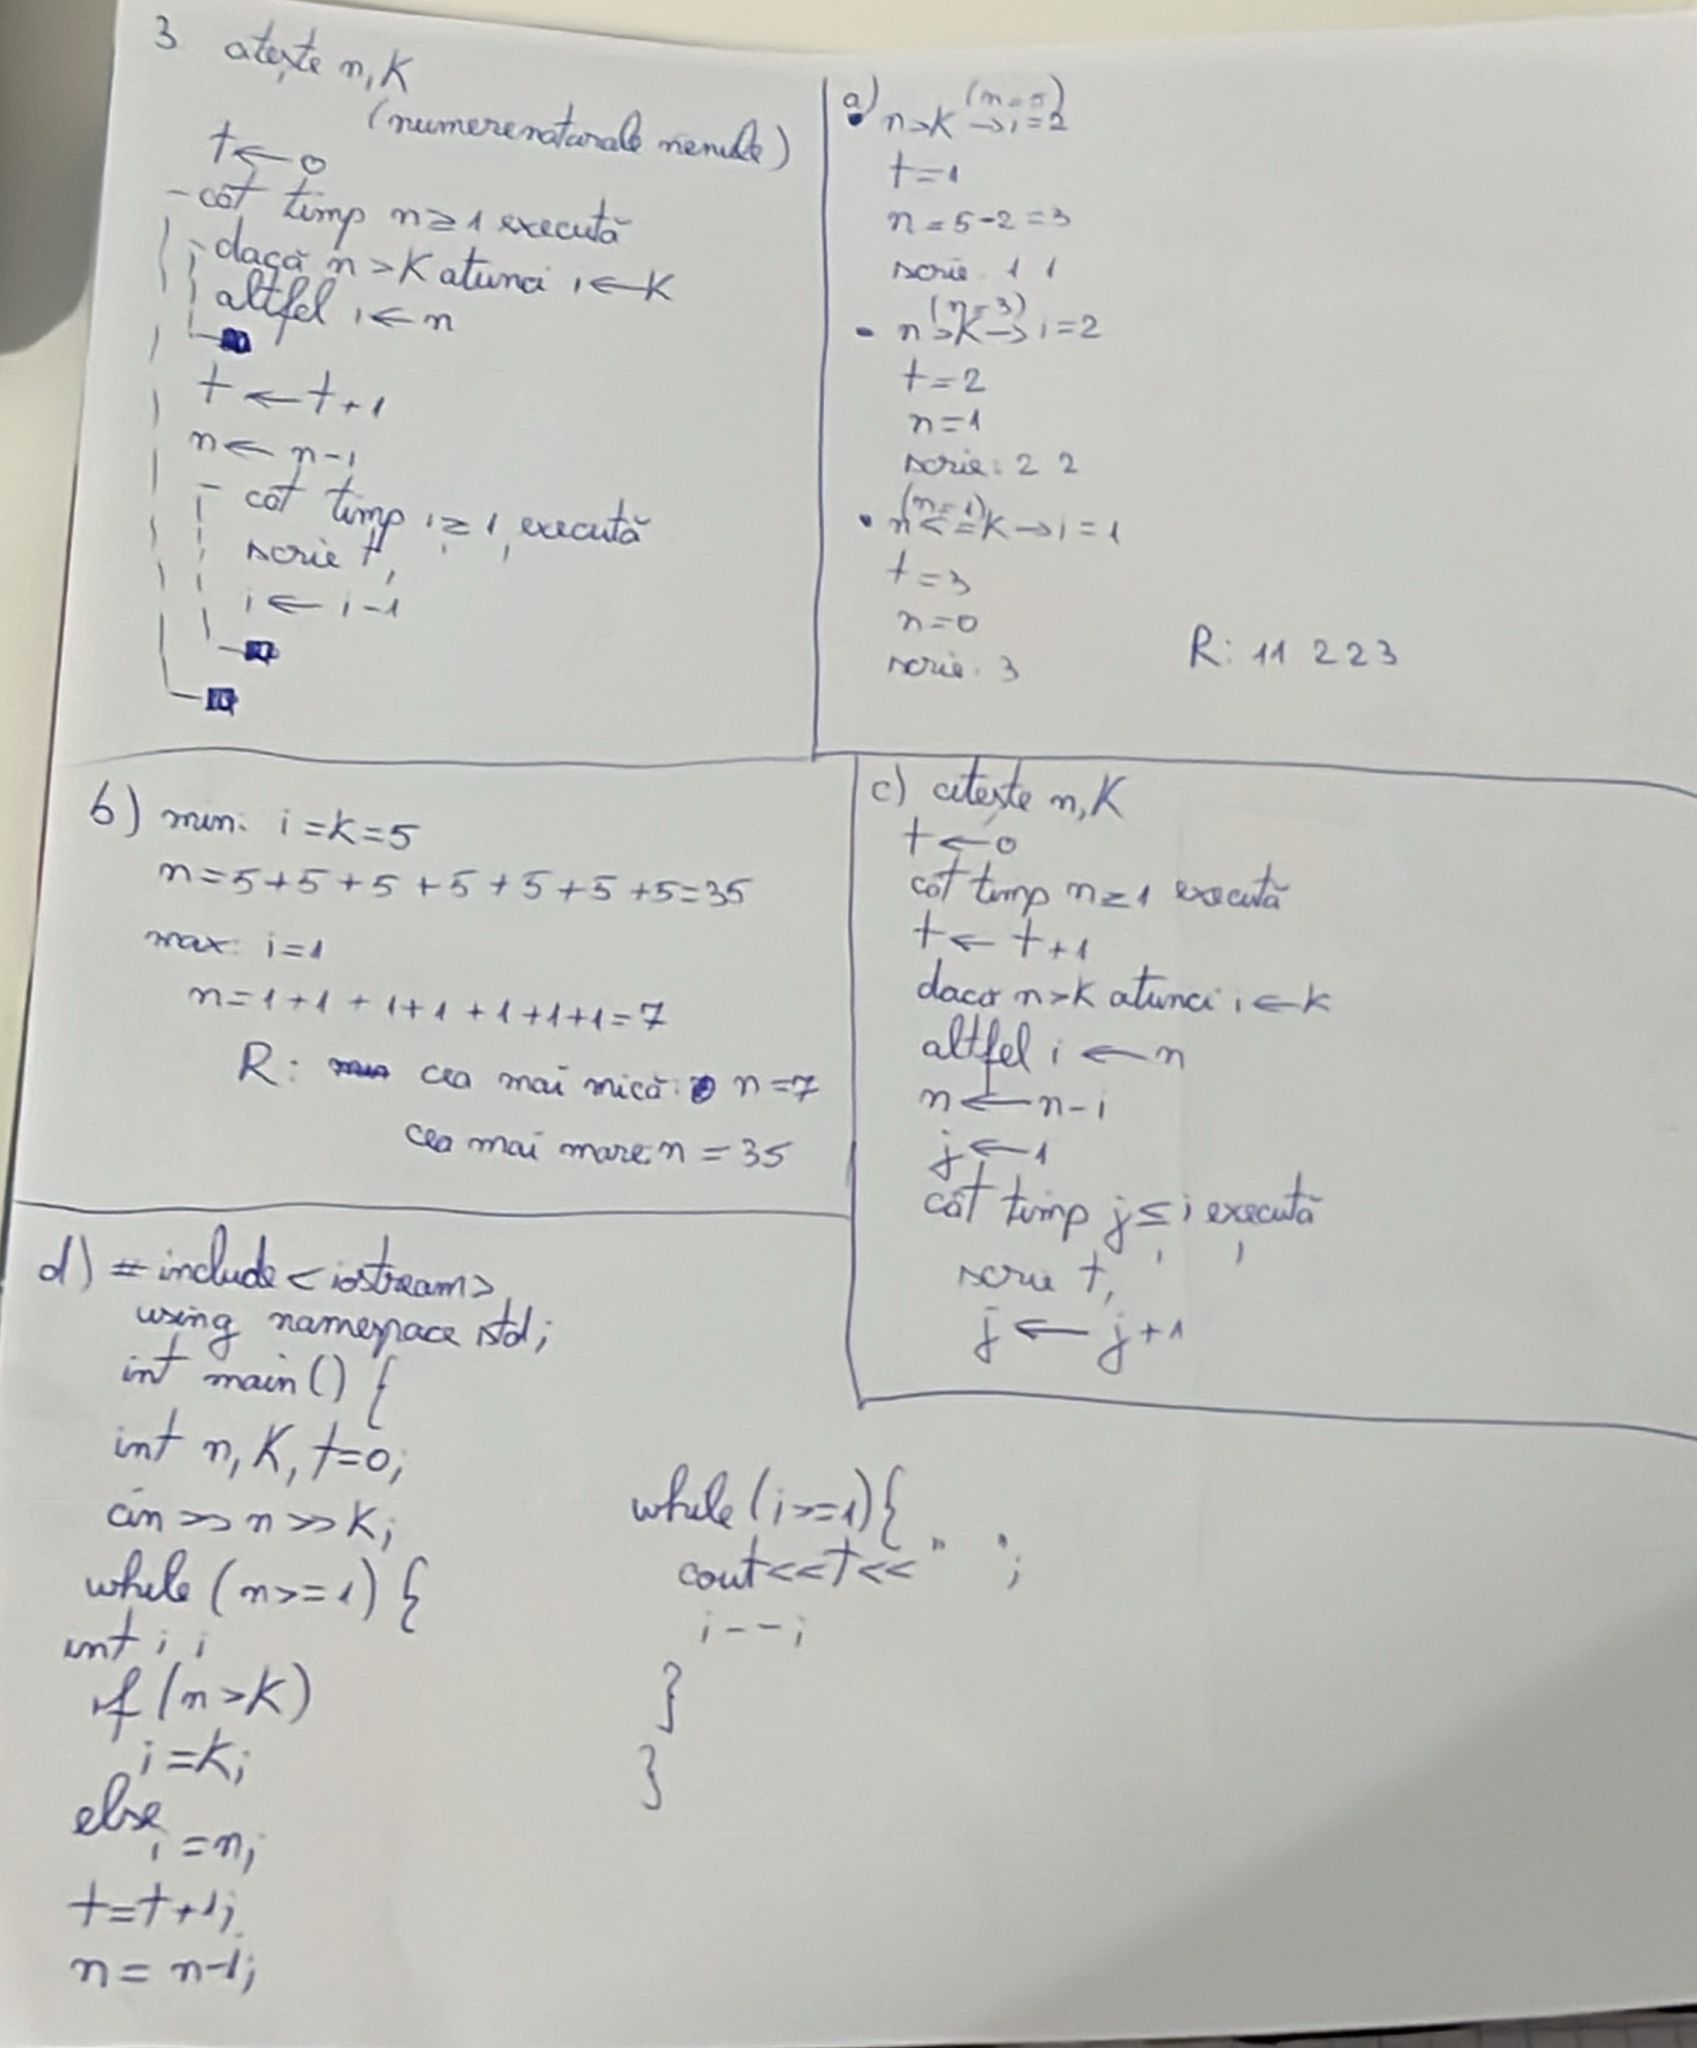 3 atește n,K
(numere naturale nenule)
t←0
cât timp n≥1 execută
dacă n>K atunci i←K
altfel i←n
t←t+1
n←n-1
cât timp i≥1 execută
scrie t,
i←i-1
a) n>K (n=5) →i=2
t=1
n=5-2=3
scrie 1 1
• n>K (n=3) →i=2
t=2
n=1
scrie: 2 2
• n<=K (n=1) →i=1
t=3
n=0
scrie: 3
R: 11 2 2 3
b) min: i=K=5
n=5+5+5+5+5+5+5=35
max: i=1
n=1+1+1+1+1+1+1=7
R: cea mai mică: n=7
cea mai mare n=35
c) citește n,K
t←0
cât timp n≥1 execută
t←t+1
daca n>K atunci i←k
altfel i←n
n←n-i
j←1
cât timp j≤i execută
scrie t,
j←j+1
d) #include<iostream>
using namespace std;
int main() {
int n,K,t=0;
cin>>n>>K;
while(n>=1) {
int i;
if (n>K)
i=K;
else
i=n;
t=t+1;
n=n-1;
while(i>=1){
cout<<t<<" ";
i--;
}
}